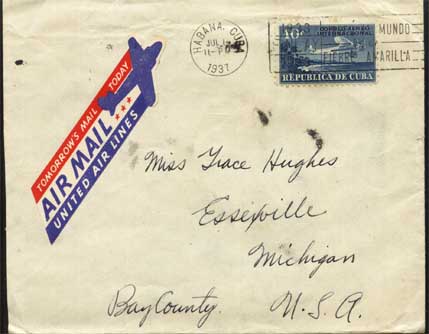 HABANA, CUBA
JUL
11-PM
1937
MUNDO
FIEBRE AMARILLA
CORREO AEREO
INTERNACIONAL
10¢
REPUBLICA DE CUBA
TOMORROW'S MAIL TODAY
AIR MAIL
UNITED AIR LINES
Miss Grace Hughes
Essexville
Michigan
Bay County. U.S.A.